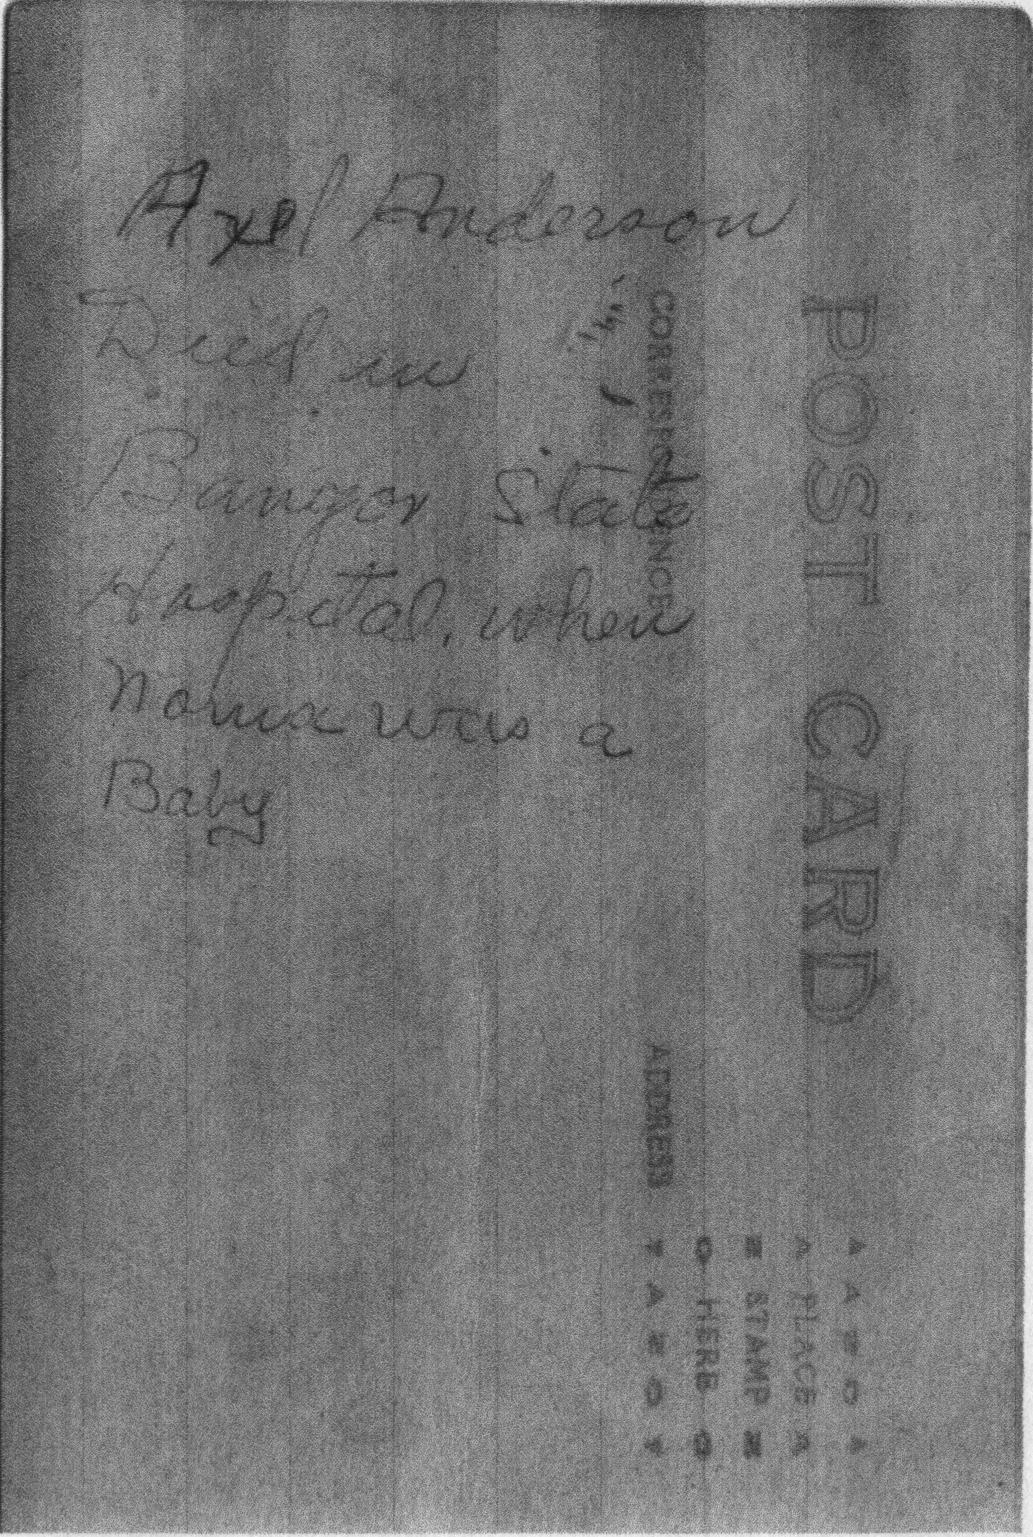 Axel Anderson
Died in
Bangor State
Hospital, when
Noma was a
Baby
POST CARD
CORRESPONDENCE
ADDRESS
PLACE
STAMP
HERE